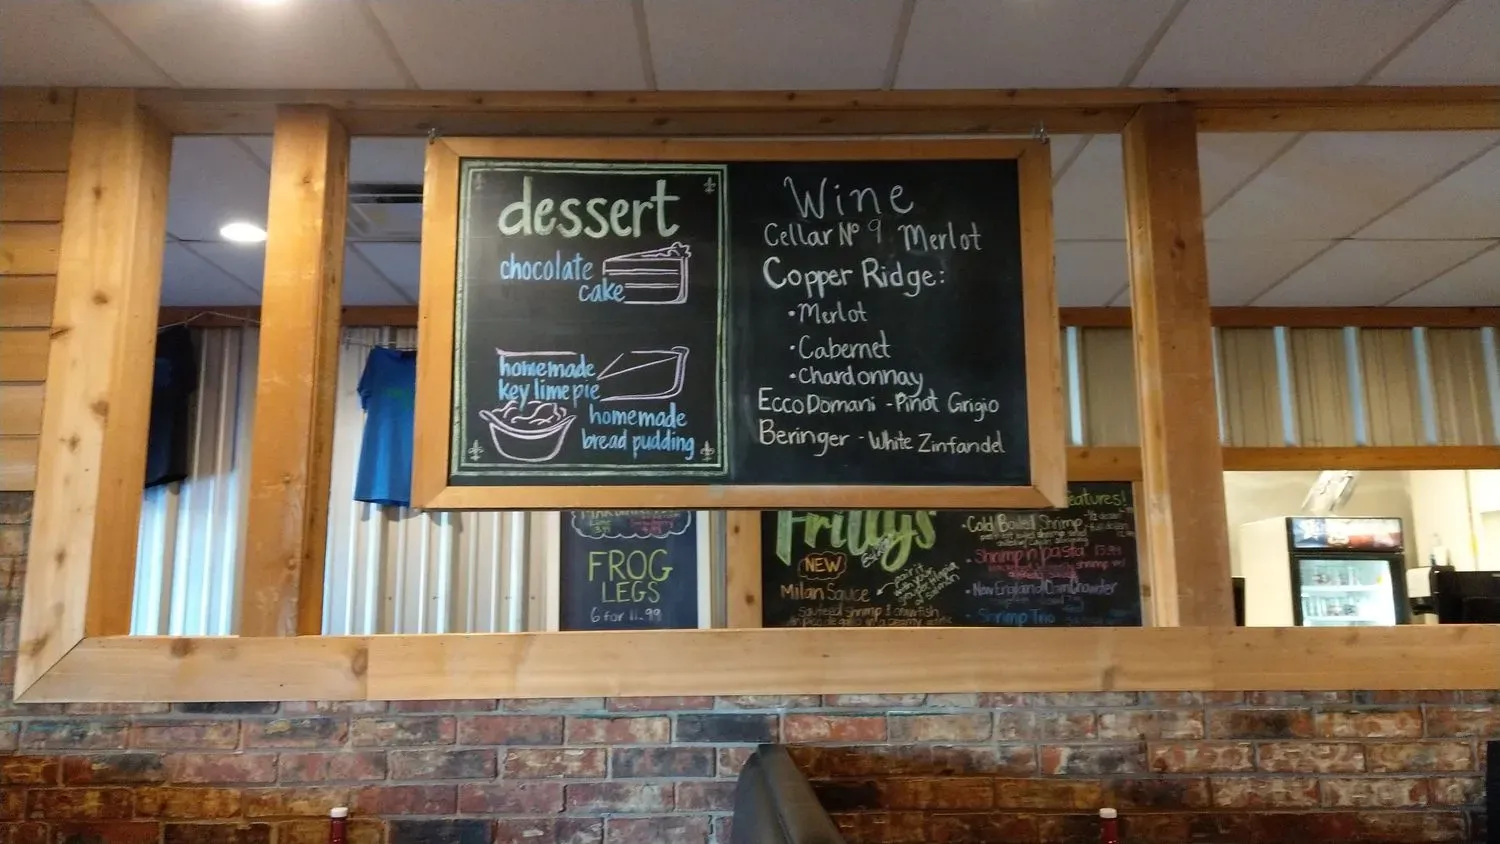 dessert
chocolate
cake
homemade
key lime pie
homemade
bread pudding
Wine
Cellar Nº 9 Merlot
Copper Ridge:
• Merlot
• Cabernet
• Chardonnay
Ecco Domani - Pinot Grigio
Beringer - White Zinfandel
FROG
LEGS
6 for 11.99
NEW
Milan Sauce
pair it
with your
Sauteed shrimp & crawfish
eatures!
• Cold Boiled Shrimp
• Shrimp n' pasta 13.99
• New England Clam Chowder
• Shrimp Trio